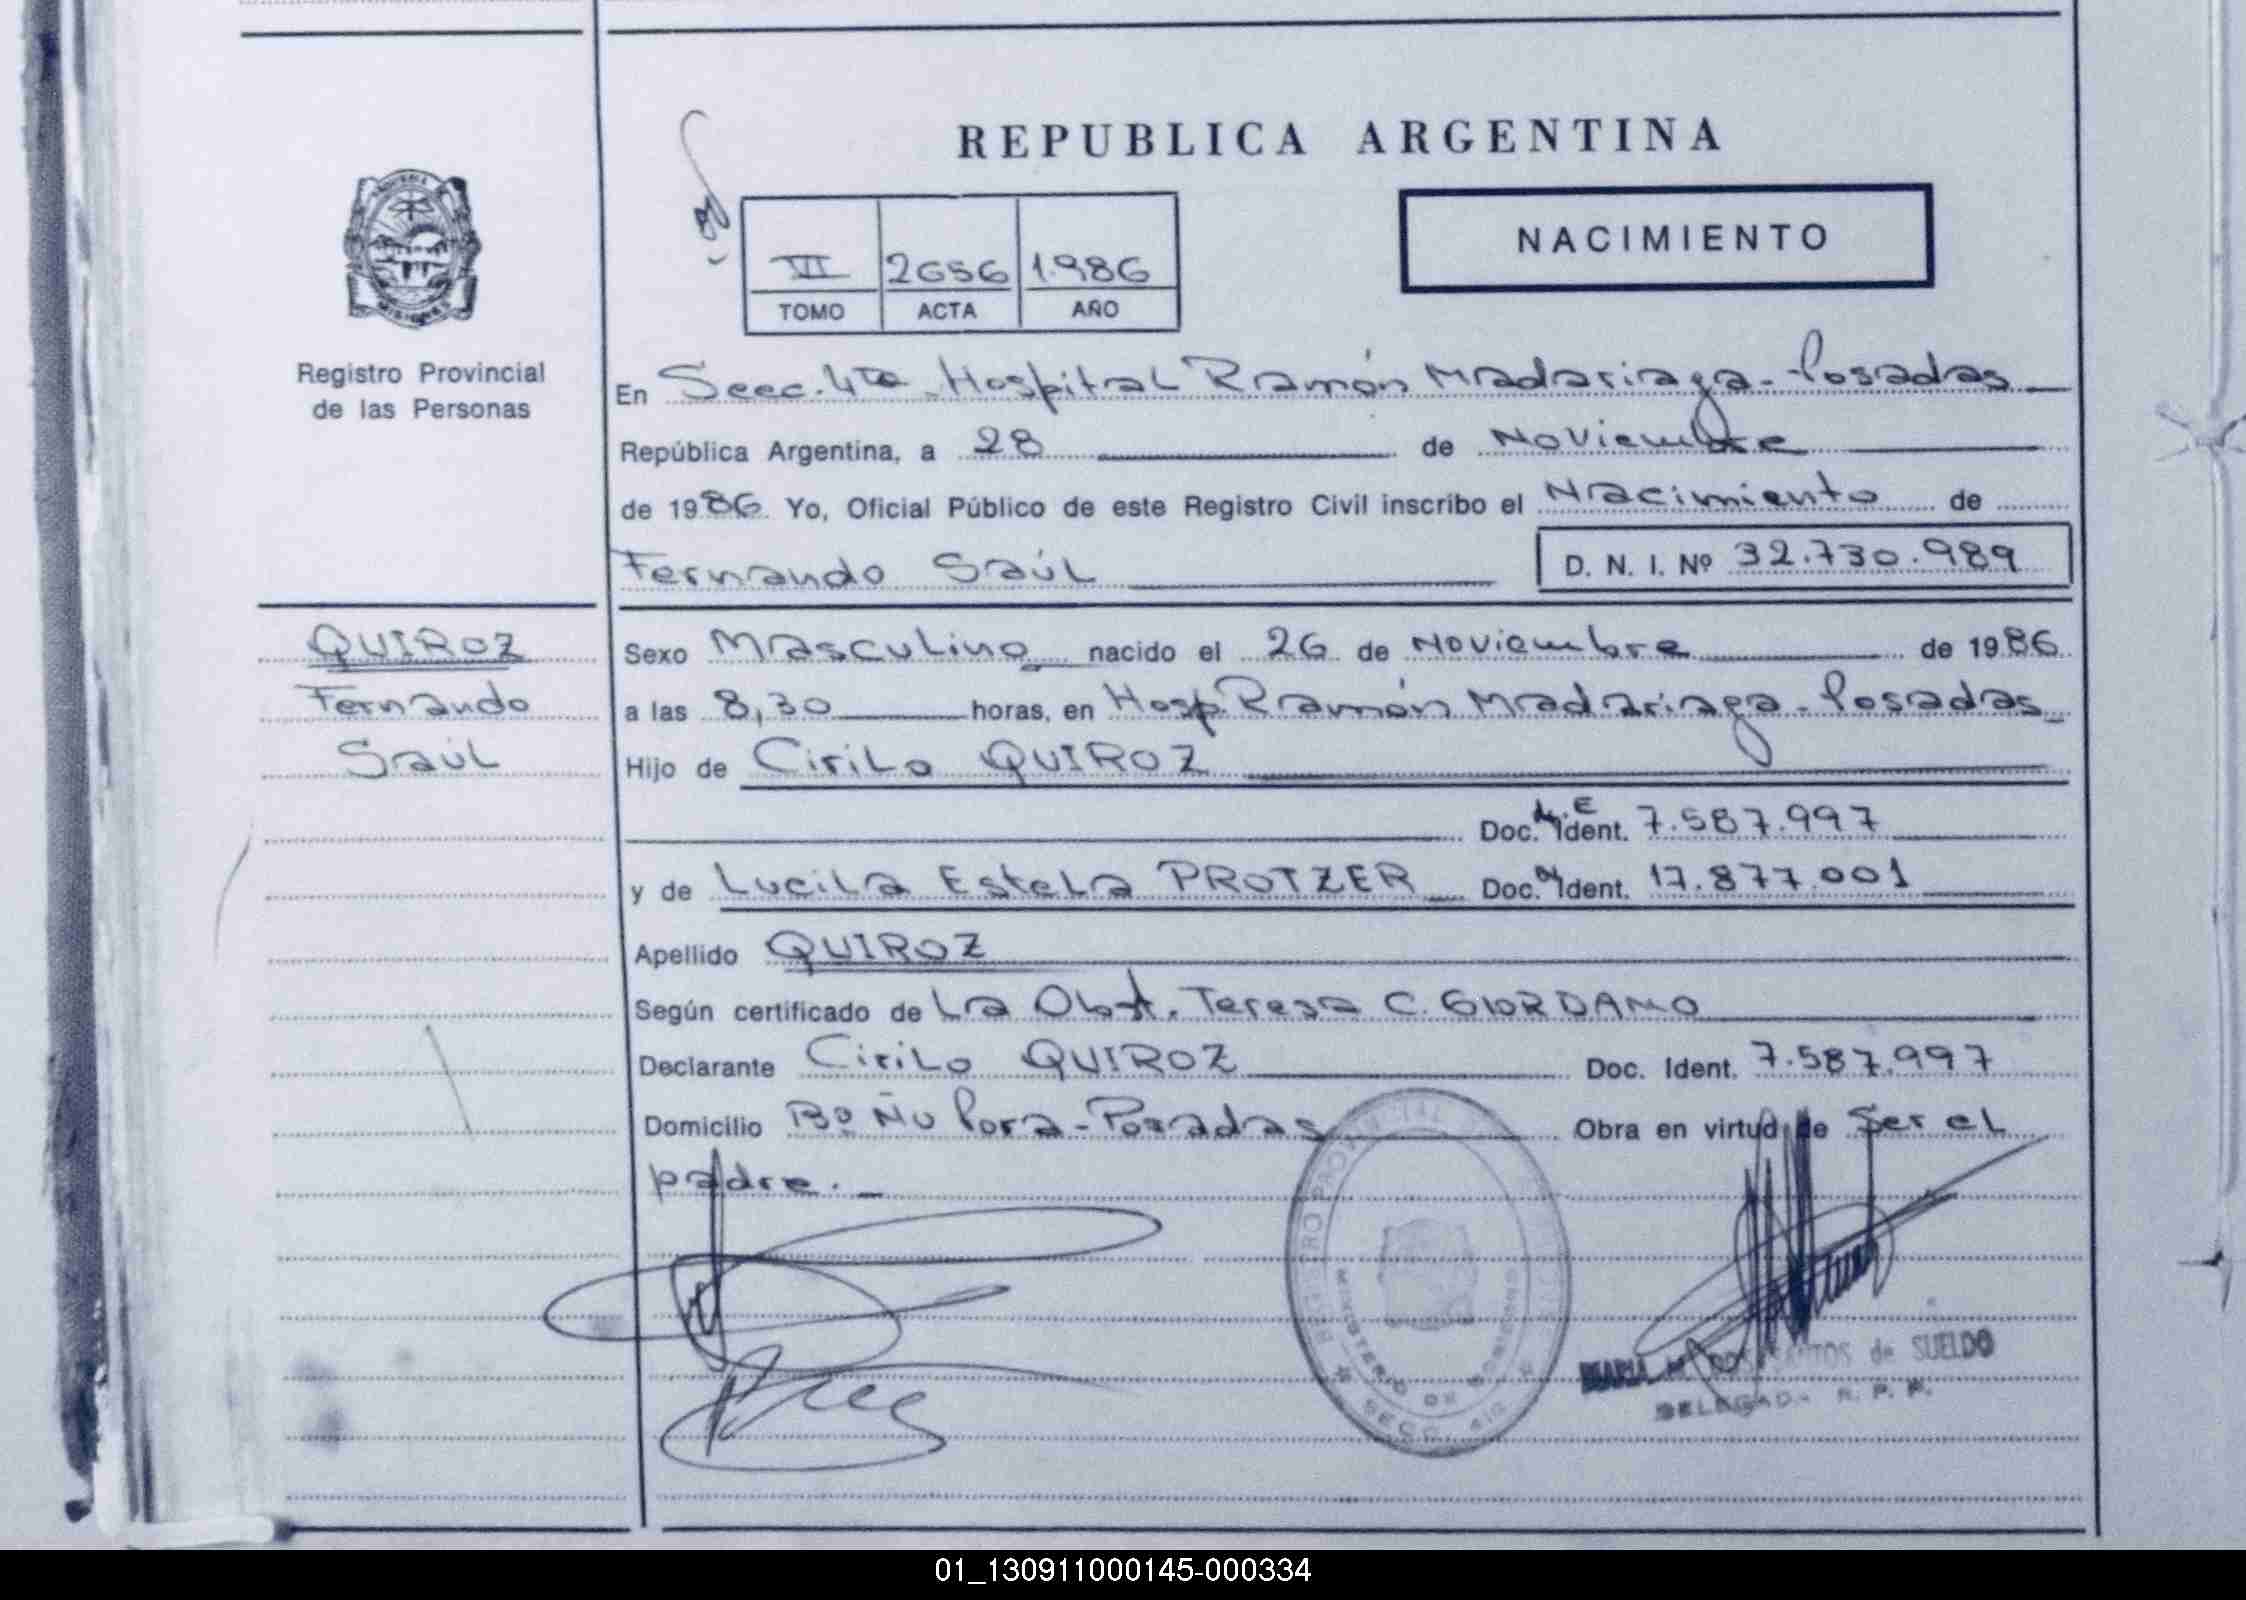 REPUBLICA ARGENTINA
NACIMIENTO
VII 2656 1.986
TOMO ACTA AÑO
Registro Provincial
de las Personas
En Secc. 4ta - Hospital Ramón Madariaga - Posadas
República Argentina, a 28 de Noviembre
de 1986 Yo, Oficial Público de este Registro Civil inscribo el Nacimiento de
Fernando Saúl D. N. I. Nº 32.730.989
QUIROZ
Fernando
Saúl
Sexo Masculino nacido el 26 de Noviembre de 1986
a las 8,30 horas, en Hosp. Ramón Madariaga - Posadas
Hijo de Cirilo QUIROZ
Doc. Ident. 7.587.997
y de Lucila Estela PROTZER Doc. Ident. 17.877.001
Apellido QUIROZ
Según certificado de La Obst. Teresa C. GIORDANO
Declarante Cirilo QUIROZ Doc. Ident. 7.587.997
Domicilio Bº Ñu Pora - Posadas Obra en virtud de Ser el
padre. -
REGISTRO PROVINCIAL
MINISTERIO DE GOBIERNO
SECC. 4ta
MARIA M. DOS SANTOS de SUELDO
DELEGADA R. P. P.
01_130911000145-000334